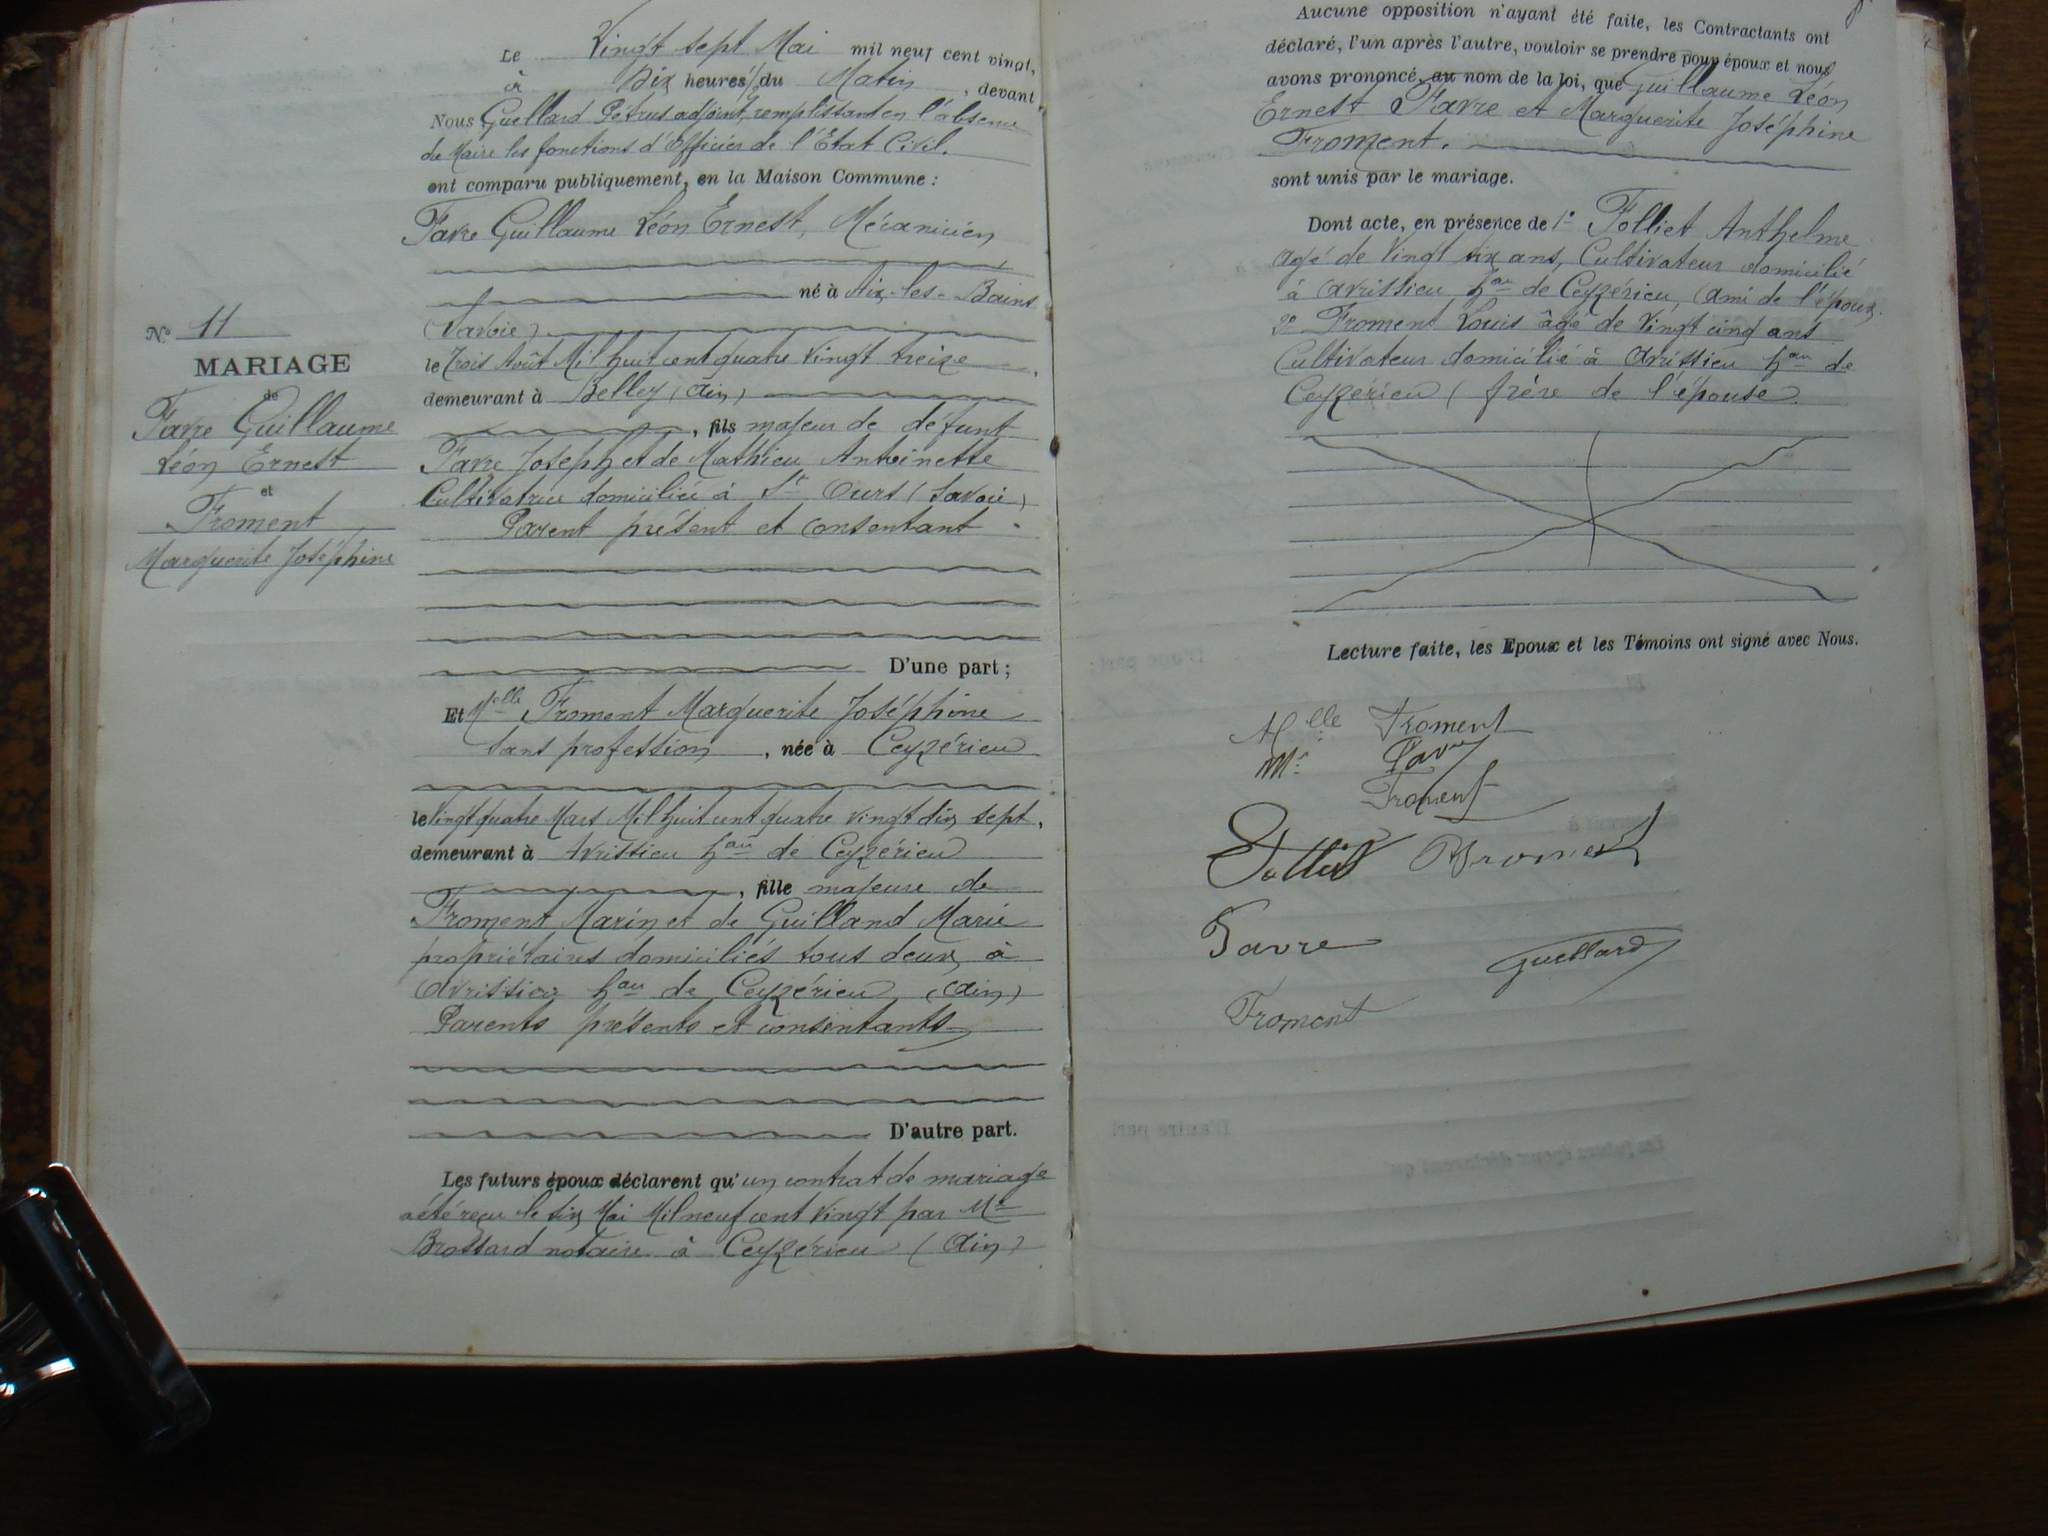 Le Vingt sept Mai mil neuf cent vingt,
à Dix heures ½ du Matin, devant
Nous Guellard Pétrus adjoint, remplissant en l'absence
du Maire les fonctions d'Officier de l'Etat Civil.
ont comparu publiquement, en la Maison Commune :
Favre Guillaume Léon Ernest, Mécanicien
né à Aix-les-Bains
(Savoie)
le Trois Août Mil huit cent quatre vingt treize,
demeurant à Belley (Ain)
, fils majeur de défunt
Favre Joseph et de Mathieu Antoinette
Cultivatrice domiciliée à St Ours (Savoie)
Parent présent et consentant
D'une part ;
No 11
MARIAGE
de
Favre Guillaume
Léon Ernest
et
Froment
Marguerite Joséphine
Et Melle Froment Marguerite Joséphine
sans profession, née à Ceyzérieu
le vingt quatre Mars Mil huit cent quatre vingt dix sept,
demeurant à Avrissieu hau de Ceyzérieu
, fille majeure de
Froment Marin et de Guilland Marie
propriétaires domiciliés tous deux à
Avrissieu hau de Ceyzérieu (Ain)
Parents présents et consentants
D'autre part.
Les futurs époux déclarent qu'un contrat de mariage
a été reçu le six Mai Mil neuf cent vingt par Me
Brossard notaire à Ceyzérieu (Ain)
Aucune opposition n'ayant été faite, les Contractants ont
déclaré, l'un après l'autre, vouloir se prendre pour époux et nous
avons prononcé, au nom de la loi, que Guillaume Léon
Ernest Favre et Marguerite Joséphine
Froment.
sont unis par le mariage.
Dont acte, en présence de 1o Folliet Anthelme
agé de Vingt six ans, Cultivateur domicilié
à Avrissieu hau de Ceyzérieu, (ami de l'époux.
2o Froment Louis âgé de Vingt cinq ans
Cultivateur domicilié à Avrissieu hau de
Ceyzérieu (frère de l'épouse.
Lecture faite, les Epoux et les Témoins ont signé avec Nous.
Melle Froment
Me Favre
Froment
Folliet Froment
Favre
Guellard
Froment